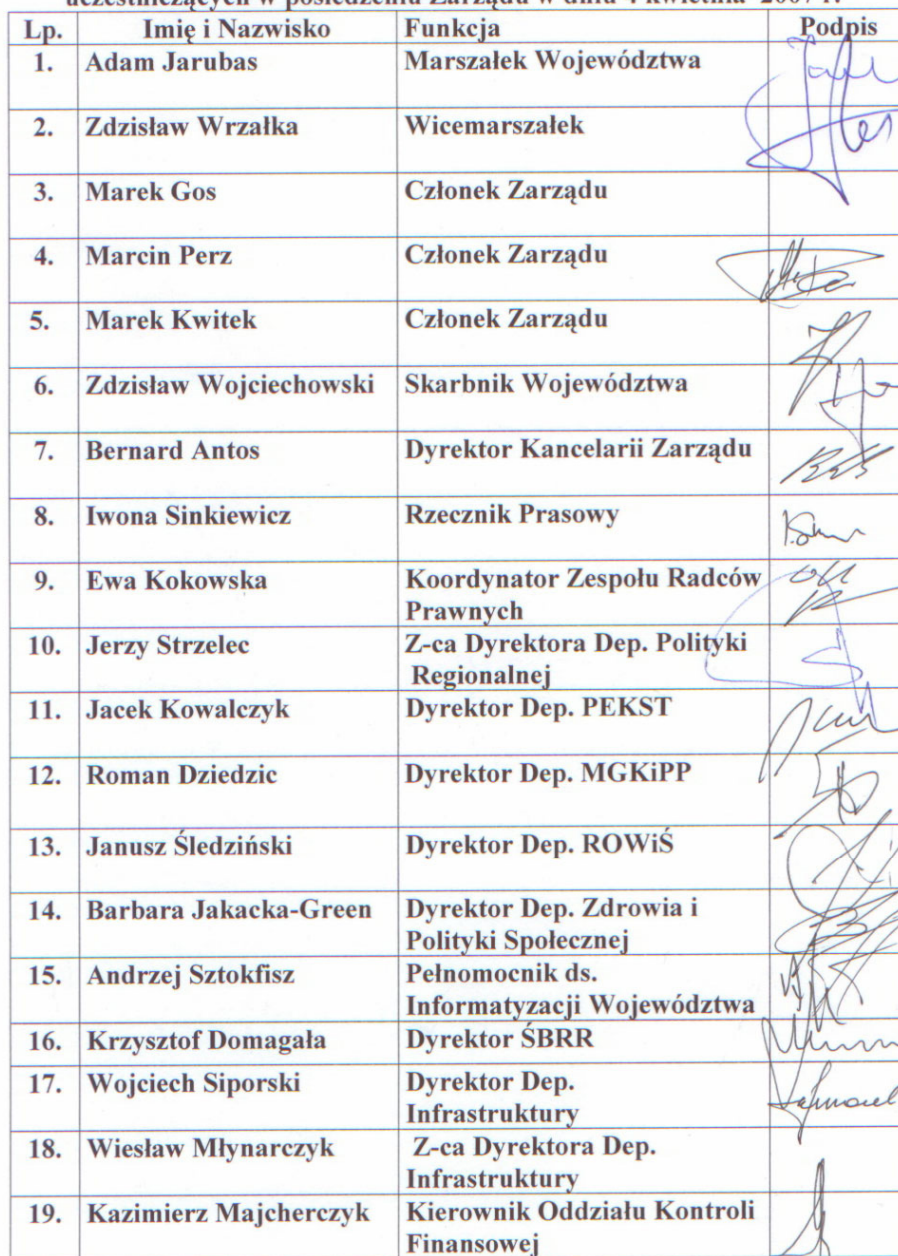 uczestniczących w posiedzeniu Zarządu w dniu 4 kwietnia 2007 r.
Lp. Imię i Nazwisko Funkcja Podpis
1. Adam Jarubas Marszałek Województwa
2. Zdzisław Wrzałka Wicemarszałek
3. Marek Gos Członek Zarządu
4. Marcin Perz Członek Zarządu
5. Marek Kwitek Członek Zarządu
6. Zdzisław Wojciechowski Skarbnik Województwa
7. Bernard Antos Dyrektor Kancelarii Zarządu
8. Iwona Sinkiewicz Rzecznik Prasowy
9. Ewa Kokowska Koordynator Zespołu Radców
Prawnych
10. Jerzy Strzelec Z-ca Dyrektora Dep. Polityki
Regionalnej
11. Jacek Kowalczyk Dyrektor Dep. PEKST
12. Roman Dziedzic Dyrektor Dep. MGKiPP
13. Janusz Śledziński Dyrektor Dep. ROWiŚ
14. Barbara Jakacka-Green Dyrektor Dep. Zdrowia i
Polityki Społecznej
15. Andrzej Sztokfisz Pełnomocnik ds.
Informatyzacji Województwa
16. Krzysztof Domagała Dyrektor ŚBRR
17. Wojciech Siporski Dyrektor Dep.
Infrastruktury
18. Wiesław Młynarczyk Z-ca Dyrektora Dep.
Infrastruktury
19. Kazimierz Majcherczyk Kierownik Oddziału Kontroli
Finansowej